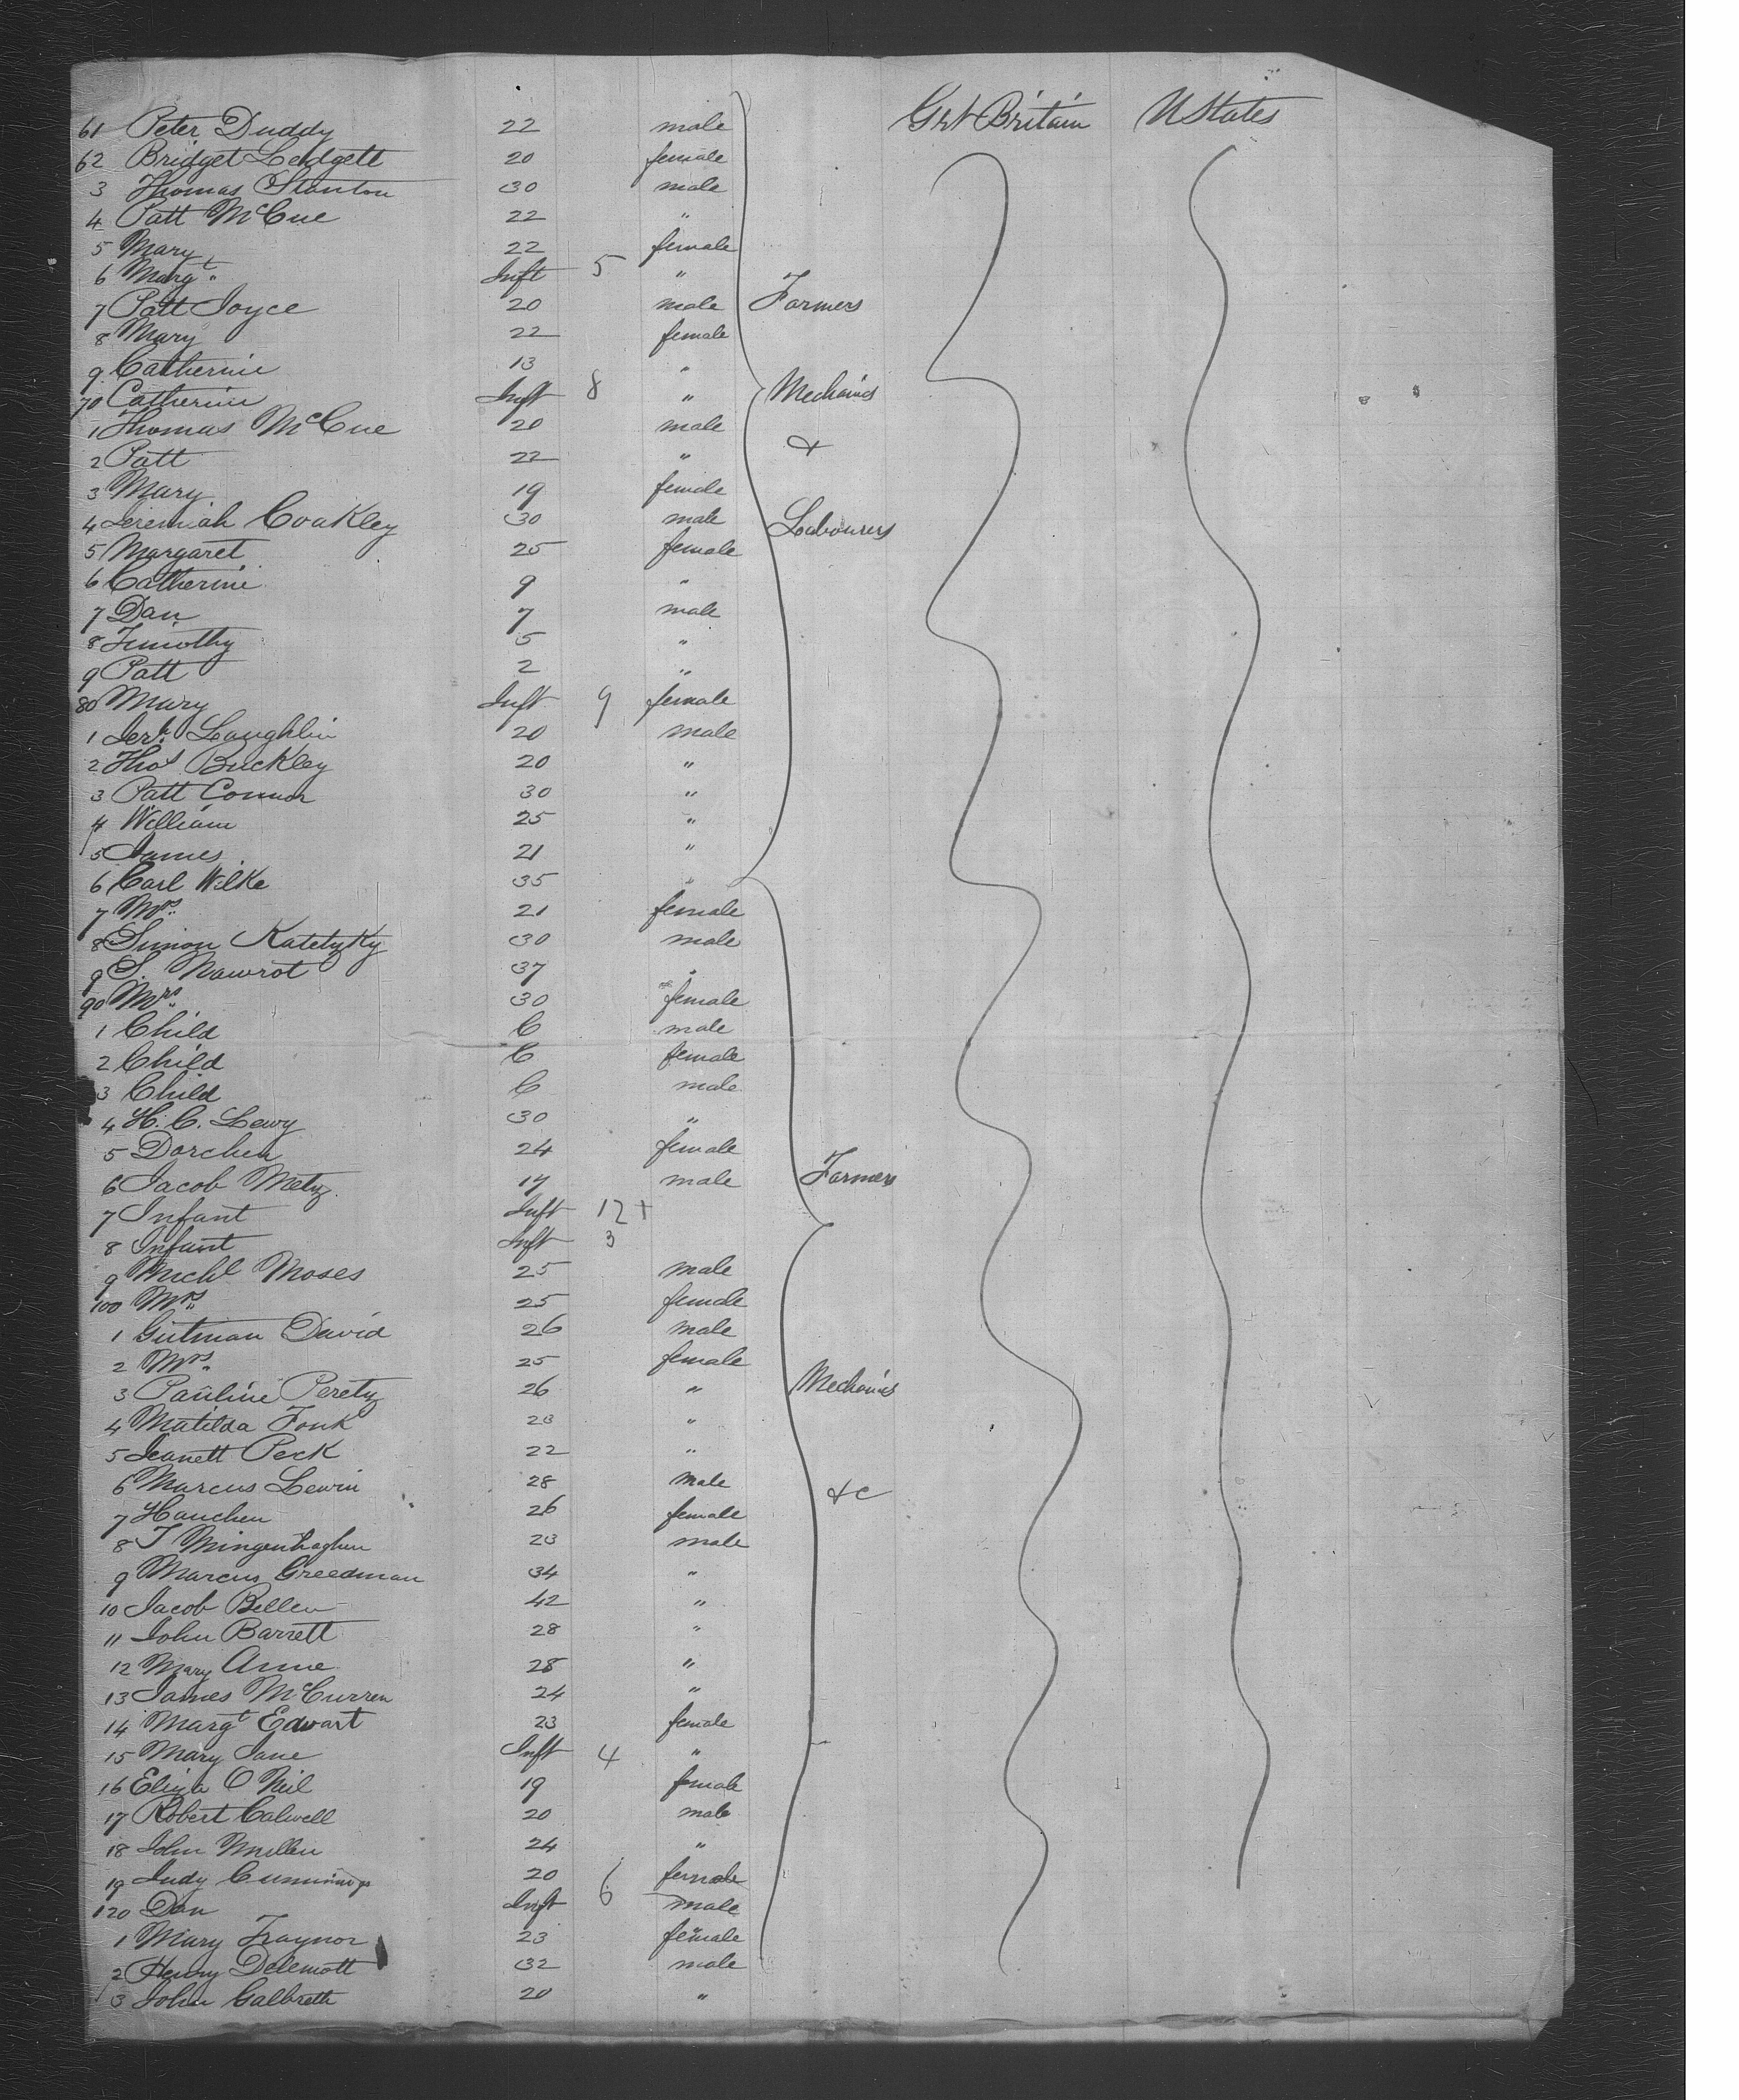 Grt Britain U States
61 Peter Duddy 22 male
62 Bridget Ledgett 20 female
3 Thomas Stanton 30 male
4 Patt McCue 22 "
5 Mary 22 female
6 Margt " Inft 5 "
7 Patt Joyce 20 male Farmers
8 Mary 22 female
9 Catherine 13 "
70 Catherine Inft 8 " Mechanics
1 Thomas McCue 20 male
2 Patt 22 " &
3 Mary 19 female
4 Jeremiah Coakley 30 male Labourers
5 Margaret 25 female
6 Catherine 9 "
7 Dan 7 male
8 Timothy 5 "
9 Patt 2 "
80 Mary Inft 9 female
1 Jerh Laughlin 20 male
2 Thos Buckley 20 "
3 Patt Connor 30 "
4 William 25 "
5 James 21 "
6 Carl Wilke 35 "
7 Mrs " 21 female
8 Simon Katetzky 30 male
9 S. Nawrot 37 "
90 Mrs " 30 female
1 Child C male
2 Child C female
3 Child C male
4 H. C. Lewy 30 "
5 Dorchen 24 female
6 Jacob Metz 17 male Farmers
7 Infant Inft 12 +
8 Infant Inft 3
9 Michl Moses 25 male
100 Mrs " 25 female
1 Gutman David 26 male
2 Mrs " 25 female
3 Pauline Peretz 26 " Mechanics
4 Matilda Fonk 23 "
5 Jeanett Peck 22 "
6 Marcus Lewin 28 male &c
7 Hanchen 26 female
8 J 23 male
9 Marcus Greedman 34 "
10 Jacob Bellen 42 "
11 John Barrett 28 "
12 Mary Anne 28 "
13 James McCurren 24 "
14 Margt Edwart 23 female
15 Mary Jane Inft 4 "
16 Eliza O Neil 19 female
17 Robert Calwell 20 male
18 John Millen 24 "
19 Judy Cummings 20 female
120 Dan Inft 6 male
1 Mary Traynor 23 female
2 Henry Delemott 32 male
3 John Galbreth 20 "